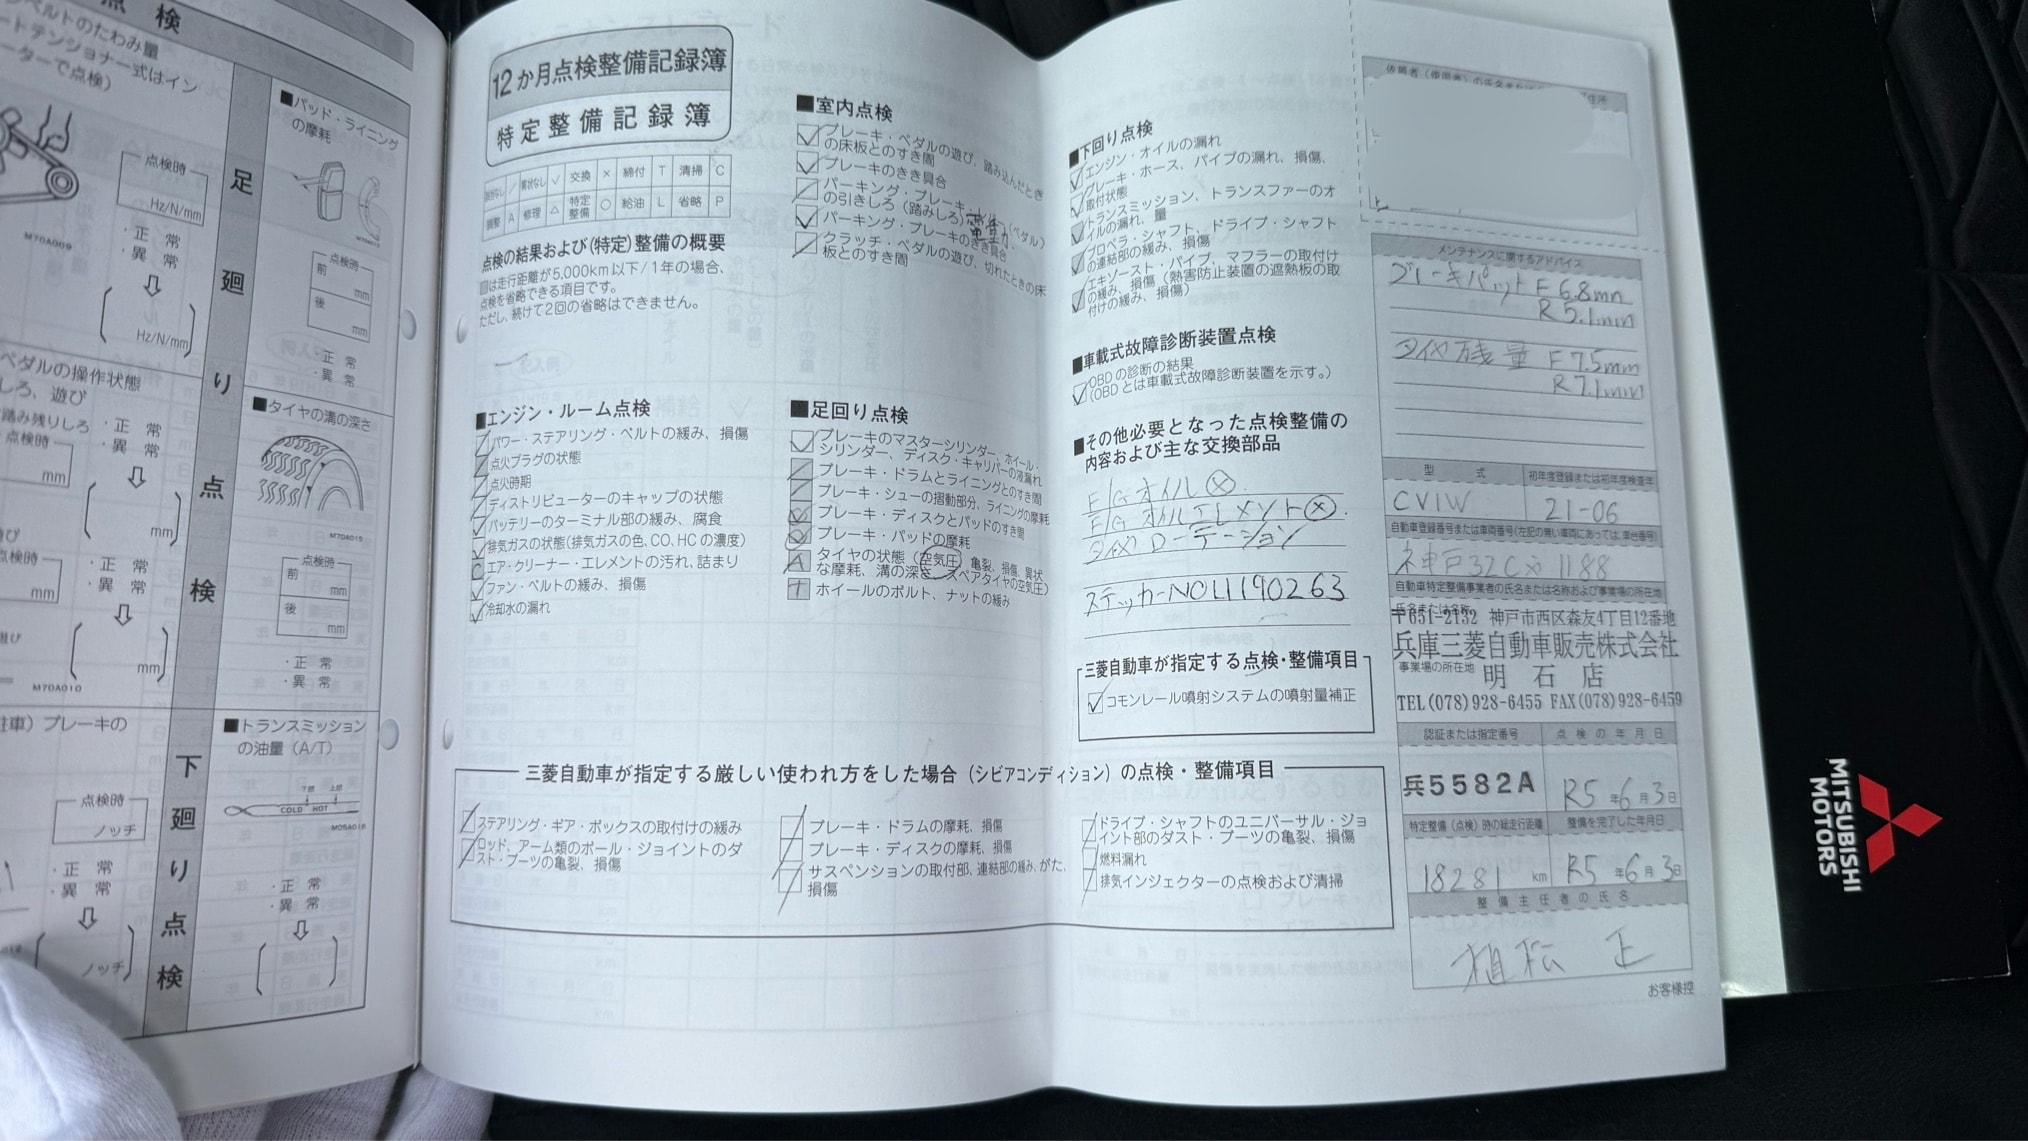 点検
ベルトのたわみ量
トテンショナー式はイン
ーターで点検)
点検時
Hz/N/mm
・正 常
・異 常
Hz/N/mm
M70A009
ペダルの操作状態
しろ、遊び
踏み残りしろ
点検時
mm
・正 常
・異 常
mm
点検時
mm
・正 常
・異 常
mm
M70A010
ブレーキの
点検時
ノッチ
・正 常
・異 常
ノッチ
足廻り点検
■パッド・ライニング
の摩耗
M70A013
点検時
前
mm
後
mm
・正 常
・異 常
■タイヤの溝の深さ
M70A015
点検時
前
mm
後
mm
・正 常
・異 常
下廻り点検
■トランスミッション
の油量(A/T)
下限 上限
COLD HOT
・正 常
・異 常
12か月点検整備記録簿
特定整備記録簿
該当なし / 異状なし ✓ 交換 × 締付 T 清掃 C
調整 A 修理 △ 特定整備 ○ 給油 L 省略 P
点検の結果および(特定)整備の概要
は走行距離が5,000km以下/1年の場合、
点検を省略できる項目です。
ただし、続けて2回の省略はできません。
■エンジン・ルーム点検
パワー・ステアリング・ベルトの緩み、損傷
点火プラグの状態
点火時期
ディストリビューターのキャップの状態
バッテリーのターミナル部の緩み、腐食
排気ガスの状態(排気ガスの色、CO、HCの濃度)
C エア・クリーナー・エレメントの汚れ、詰まり
ファン・ベルトの緩み、損傷
冷却水の漏れ
■室内点検
ブレーキ・ペダルの遊び、踏み込んだとき
の床板とのすき間
ブレーキのきき具合
パーキング・ブレーキ・レバー(ペダル)
の引きしろ(踏みしろ)
パーキング・ブレーキのきき具合
クラッチ・ペダルの遊び、切れたときの床
板とのすき間
■足回り点検
ブレーキのマスターシリンダー、ホイール・
シリンダー、ディスク・キャリパーの液漏れ
ブレーキ・ドラムとライニングとのすき間
ブレーキ・シューの摺動部分、ライニングの摩耗
ブレーキ・ディスクとパッドのすき間
ブレーキ・パッドの摩耗
A タイヤの状態(空気圧、亀裂、損傷、異状
な摩耗、溝の深さ、スペアタイヤの空気圧)
T ホイールのボルト、ナットの緩み
■下回り点検
エンジン・オイルの漏れ
ブレーキ・ホース、パイプの漏れ、損傷、
取付状態
トランスミッション、トランスファーのオ
イルの漏れ、量
プロペラ・シャフト、ドライブ・シャフト
の連結部の緩み、損傷
エキゾースト・パイプ、マフラーの取付け
の緩み、損傷(熱害防止装置の遮熱板の取
付けの緩み、損傷)
■車載式故障診断装置点検
OBDの診断の結果
(OBDとは車載式故障診断装置を示す。)
■その他必要となった点検整備の
内容および主な交換部品
E/Gオイル ⊗
E/Gオイルエレメント ⊗
タイヤローテーション
ステッカーNO L1190263
三菱自動車が指定する点検・整備項目
コモンレール噴射システムの噴射量補正
三菱自動車が指定する厳しい使われ方をした場合(シビアコンディション)の点検・整備項目
ステアリング・ギア・ボックスの取付けの緩み
ロッド、アーム類のボール・ジョイントのダ
スト・ブーツの亀裂、損傷
ブレーキ・ドラムの摩耗、損傷
ブレーキ・ディスクの摩耗、損傷
サスペンションの取付部、連結部の緩み、がた、
損傷
ドライブ・シャフトのユニバーサル・ジョ
イント部のダスト・ブーツの亀裂、損傷
燃料漏れ
排気インジェクターの点検および清掃
メンテナンスに関するアドバイス
ブレーキパット F 6.8mm
R 5.1mm
タイヤ残量 F 7.5mm
R 7.1mm
型 式
初年度登録または初年度検査年
CV1W
21-06
自動車登録番号または車両番号(左記の無い車両にあっては、車台番号)
自動車特定整備事業者の氏名または名称および事業場の所在地
氏名または名称
〒651-2132 神戸市西区森友4丁目12番地
兵庫三菱自動車販売株式会社
事業場の所在地
明石店
TEL(078)928-6455 FAX(078)928-6459
認証または指定番号
点検の年月日
兵5582A
R5年6月3日
特定整備(点検)時の総走行距離
整備を完了した年月日
18281 km
R5年6月3日
整備主任者の氏名
植松 正
お客様控
MITSUBISHI
MOTORS